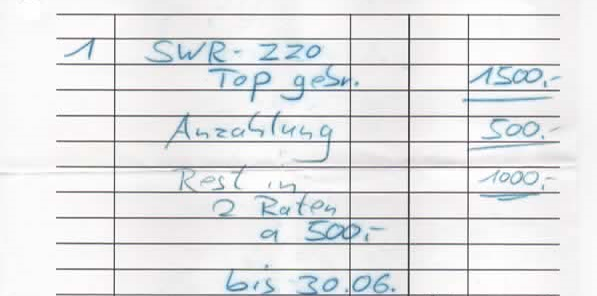 1 SWR-220
Top gebr. 1500,-
Anzahlung 500.-
Rest in 1000,-
2 Raten
a 500,-
bis 30.06.